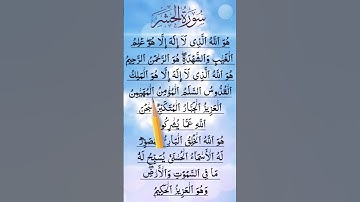 سُورَةُ الْحَشْرِ
هُوَ اللّٰهُ الَّذِي لَا إِلٰهَ إِلَّا هُوَ عٰلِمُ
الْغَيْبِ وَالشَّهٰدَةِ هُوَ الرَّحْمٰنُ الرَّحِيمُ
هُوَ اللّٰهُ الَّذِي لَا إِلٰهَ إِلَّا هُوَ الْمَلِكُ
الْقُدُّوسُ السَّلٰمُ الْمُؤْمِنُ الْمُهَيْمِنُ
الْعَزِيزُ الْجَبَّارُ الْمُتَكَبِّرُ
اللّٰهِ عَمَّا يُشْرِكُونَ
هُوَ اللّٰهُ الْخٰلِقُ الْبَارِئُ الْمُصَوِّرُ
لَهُ الْأَسْمَاءُ الْحُسْنٰى يُسَبِّحُ لَهُ
مَا فِي السَّمٰوٰتِ وَالْأَرْضِ
وَهُوَ الْعَزِيزُ الْحَكِيمُ